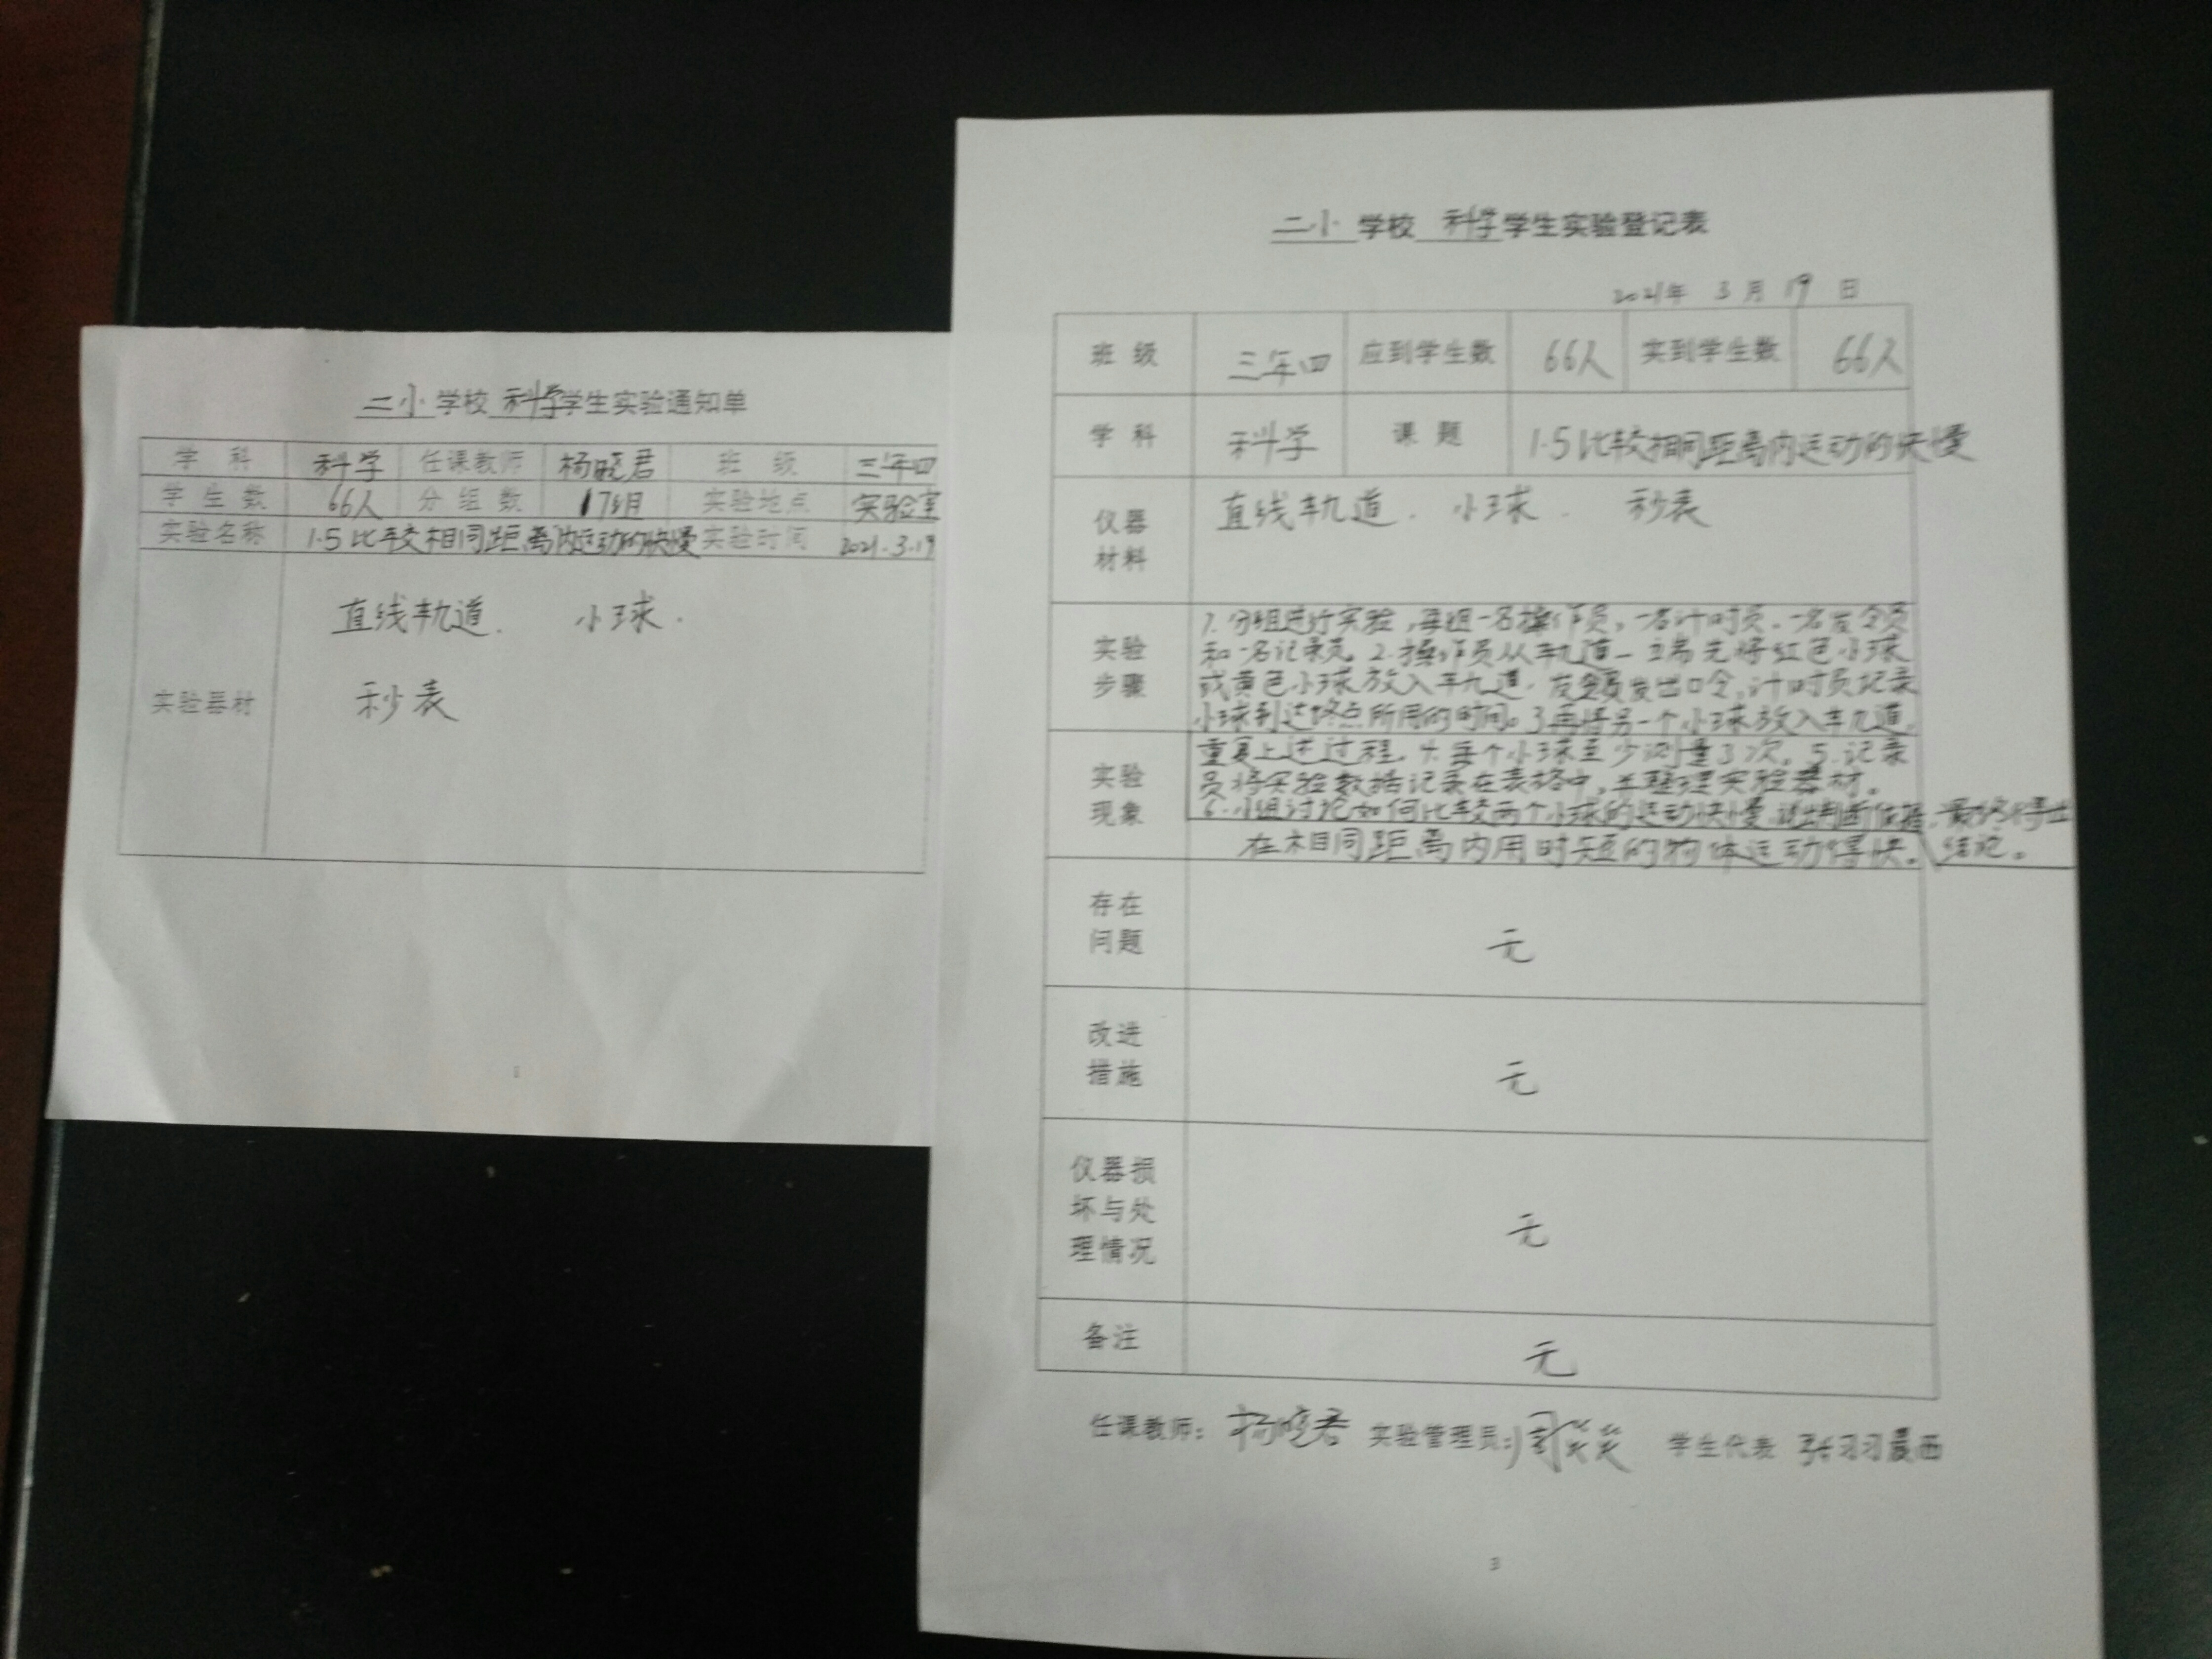 二小 学校 科学 学生实验通知单
学 科 科学 任课教师 杨晓君 班 级 三年四
学 生 数 66人 分 组 数 17组 实验地点 实验室
实验名称 1.5比较相同距离内运动的快慢 实验时间 2021.3.19
实验器材
直线轨道. 小球.
秒表
1
二小 学校 科学 学生实验登记表
2021年 3 月 19 日
班 级 三年四 应到学生数 66人 实到学生数 66人
学 科 科学 课 题 1.5比较相同距离内运动的快慢
仪器
材料
直线轨道. 小球. 秒表
实验
步骤
1.分组进行实验,每组一名操作员,一名计时员.一名发令员
和一名记录员。2.操作员从轨道一端先将红色小球
或黄色小球放入轨道.发令员发出口令,计时员记录
小球到达终点所用的时间。3再将另一个小球放入轨道,
重复上述过程。4.每个小球至少测量3次。5.记录
员将实验数据记录在表格中,并整理实验器材。
6.小组讨论如何比较两个小球的运动快慢,说出判断依据,最终得出
结论。
实验
现象
在相同距离内用时短的物体运动得快。
存在
问题
无
改进
措施
无
仪器损
坏与处
理情况
无
备注
无
任课教师: 杨晓君 实验管理员: 学生代表
3